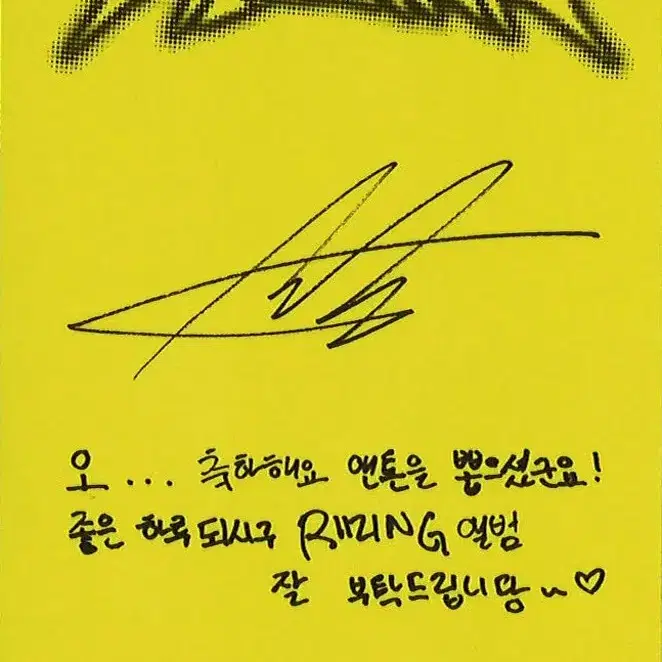 오... 축하해요 앤톤을 뽑으셨군요!
좋은 하루 되시구 RIIZING 앨범
잘 부탁드립니당~♡